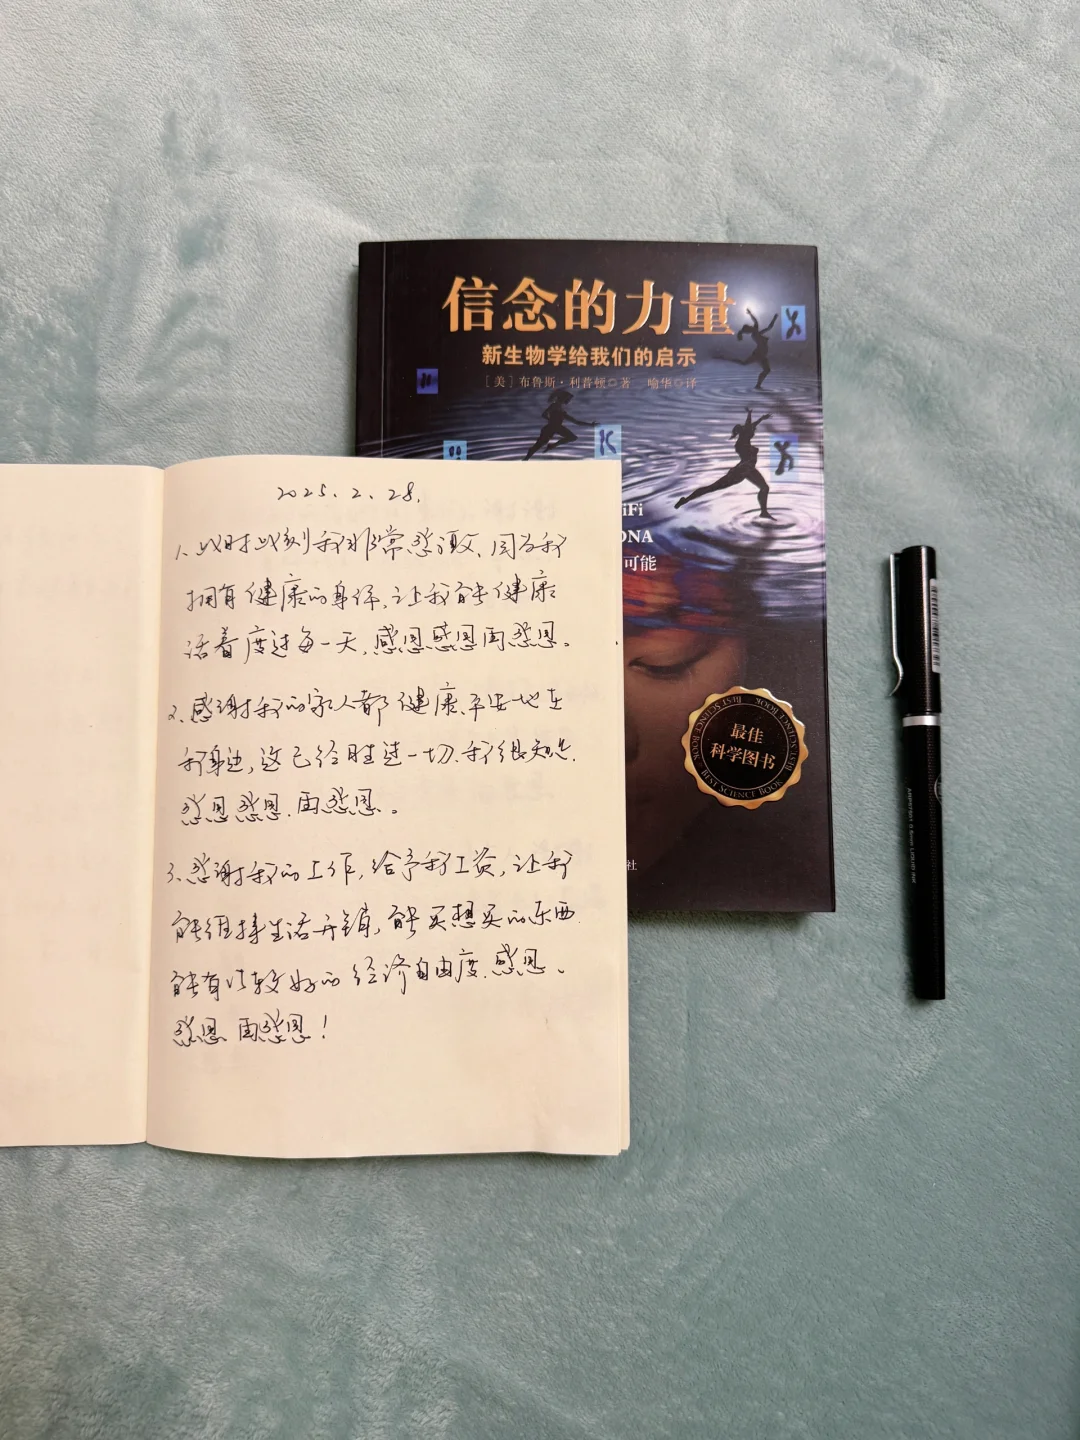 信念的力量
新生物学给我们的启示
[美]布鲁斯·利普顿◎著 喻华◎译
iFi
DNA
可能
最佳
科学图书
BEST SCIENCE BOOK
BEST SCIENCE BOOK
BEST SCIENCE BOOK
社
2025.2.28.
1、此时此刻我非常感激、因为我
拥有健康的身体,让我能健康
活着度过每一天,感恩感恩再感恩。
2、感谢我的家人都健康、平安地在
我身边,这已经胜过一切.我很知足.
感恩感恩.再感恩。
3、感谢我的工作,给予我工资,让我
能维持生活开销,能买想买的东西.
能有比较好的经济自由度.感恩、
感恩 再感恩!